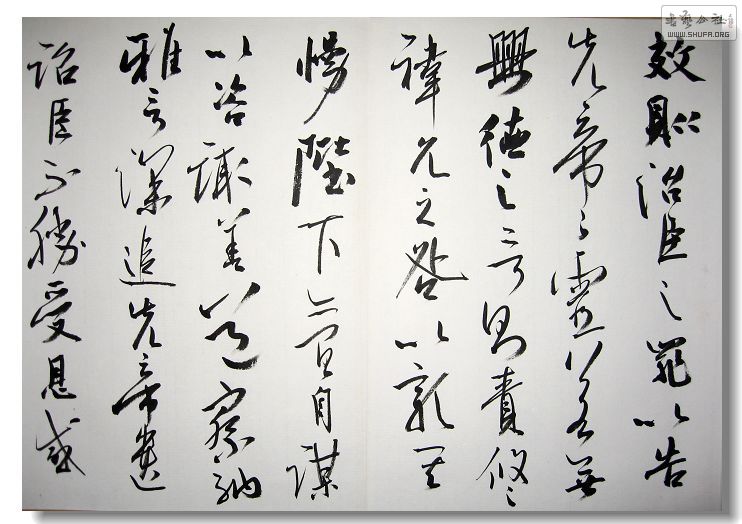 效則治臣之罪以告
先帝之靈若無
興德之言則責攸之
禕允之咎以彰其
慢陛下亦宜自謀
以咨諏善道察納
雅言深追先帝遺
詔臣不勝受恩感
书艺公社
WWW.SHUFA.ORG